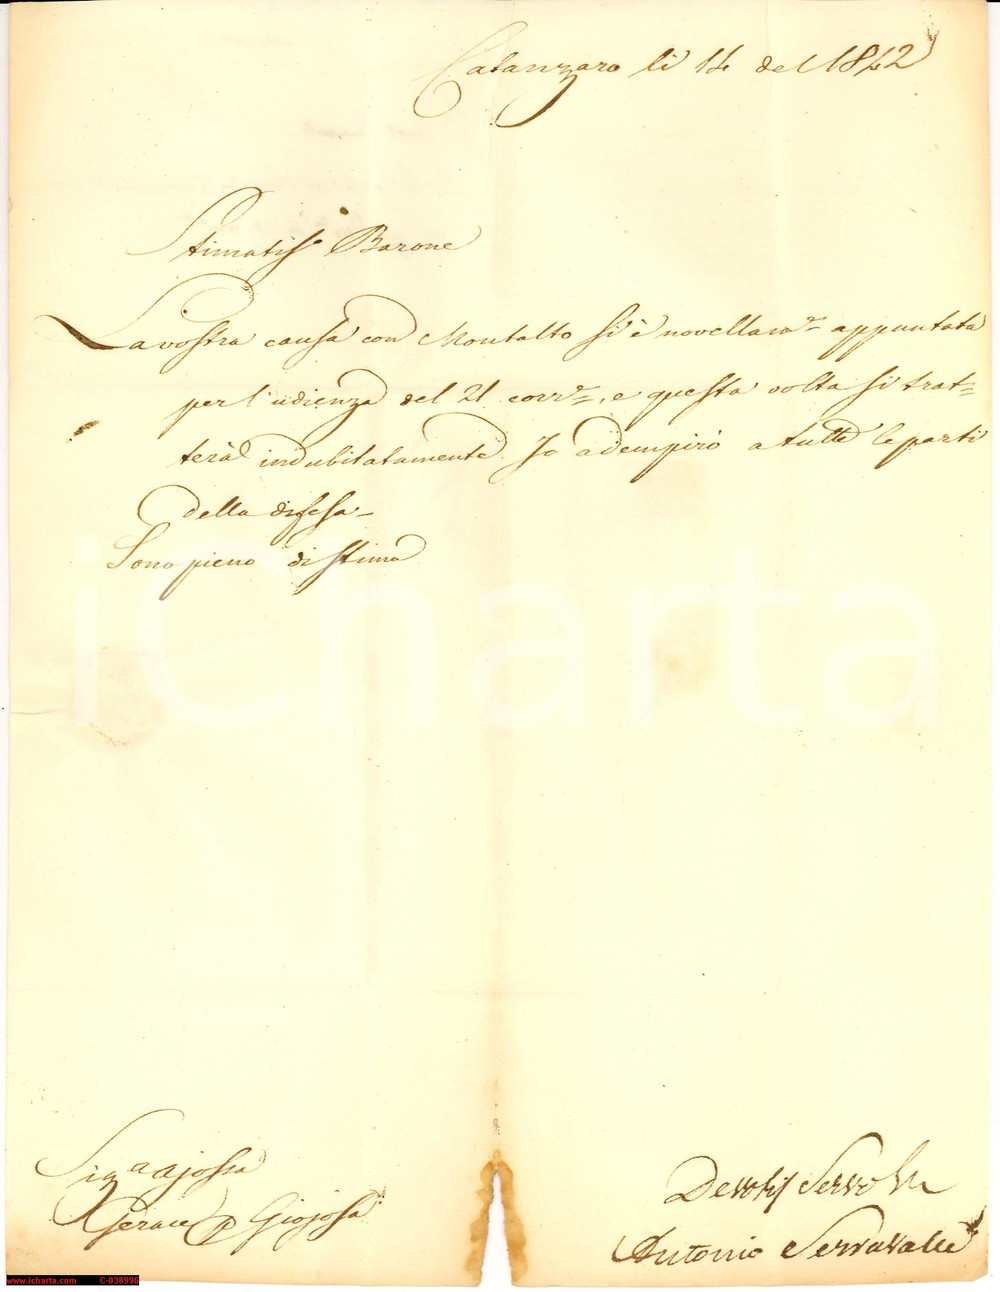 Catanzaro li 14 del 1842
Stimatis.° Barone
La vostra causa con Montalto si è novellam.e appuntata
per l'udienza del 21 corr.e, e questa volta si trat=
terà indubitatamente. Io adempirò a tutte le parti
della difesa_
Sono pieno di stima
iCharta
Gerace p Giojosa
Devotis Servo
Antonio Serravalle
www.icharta.com C-038996